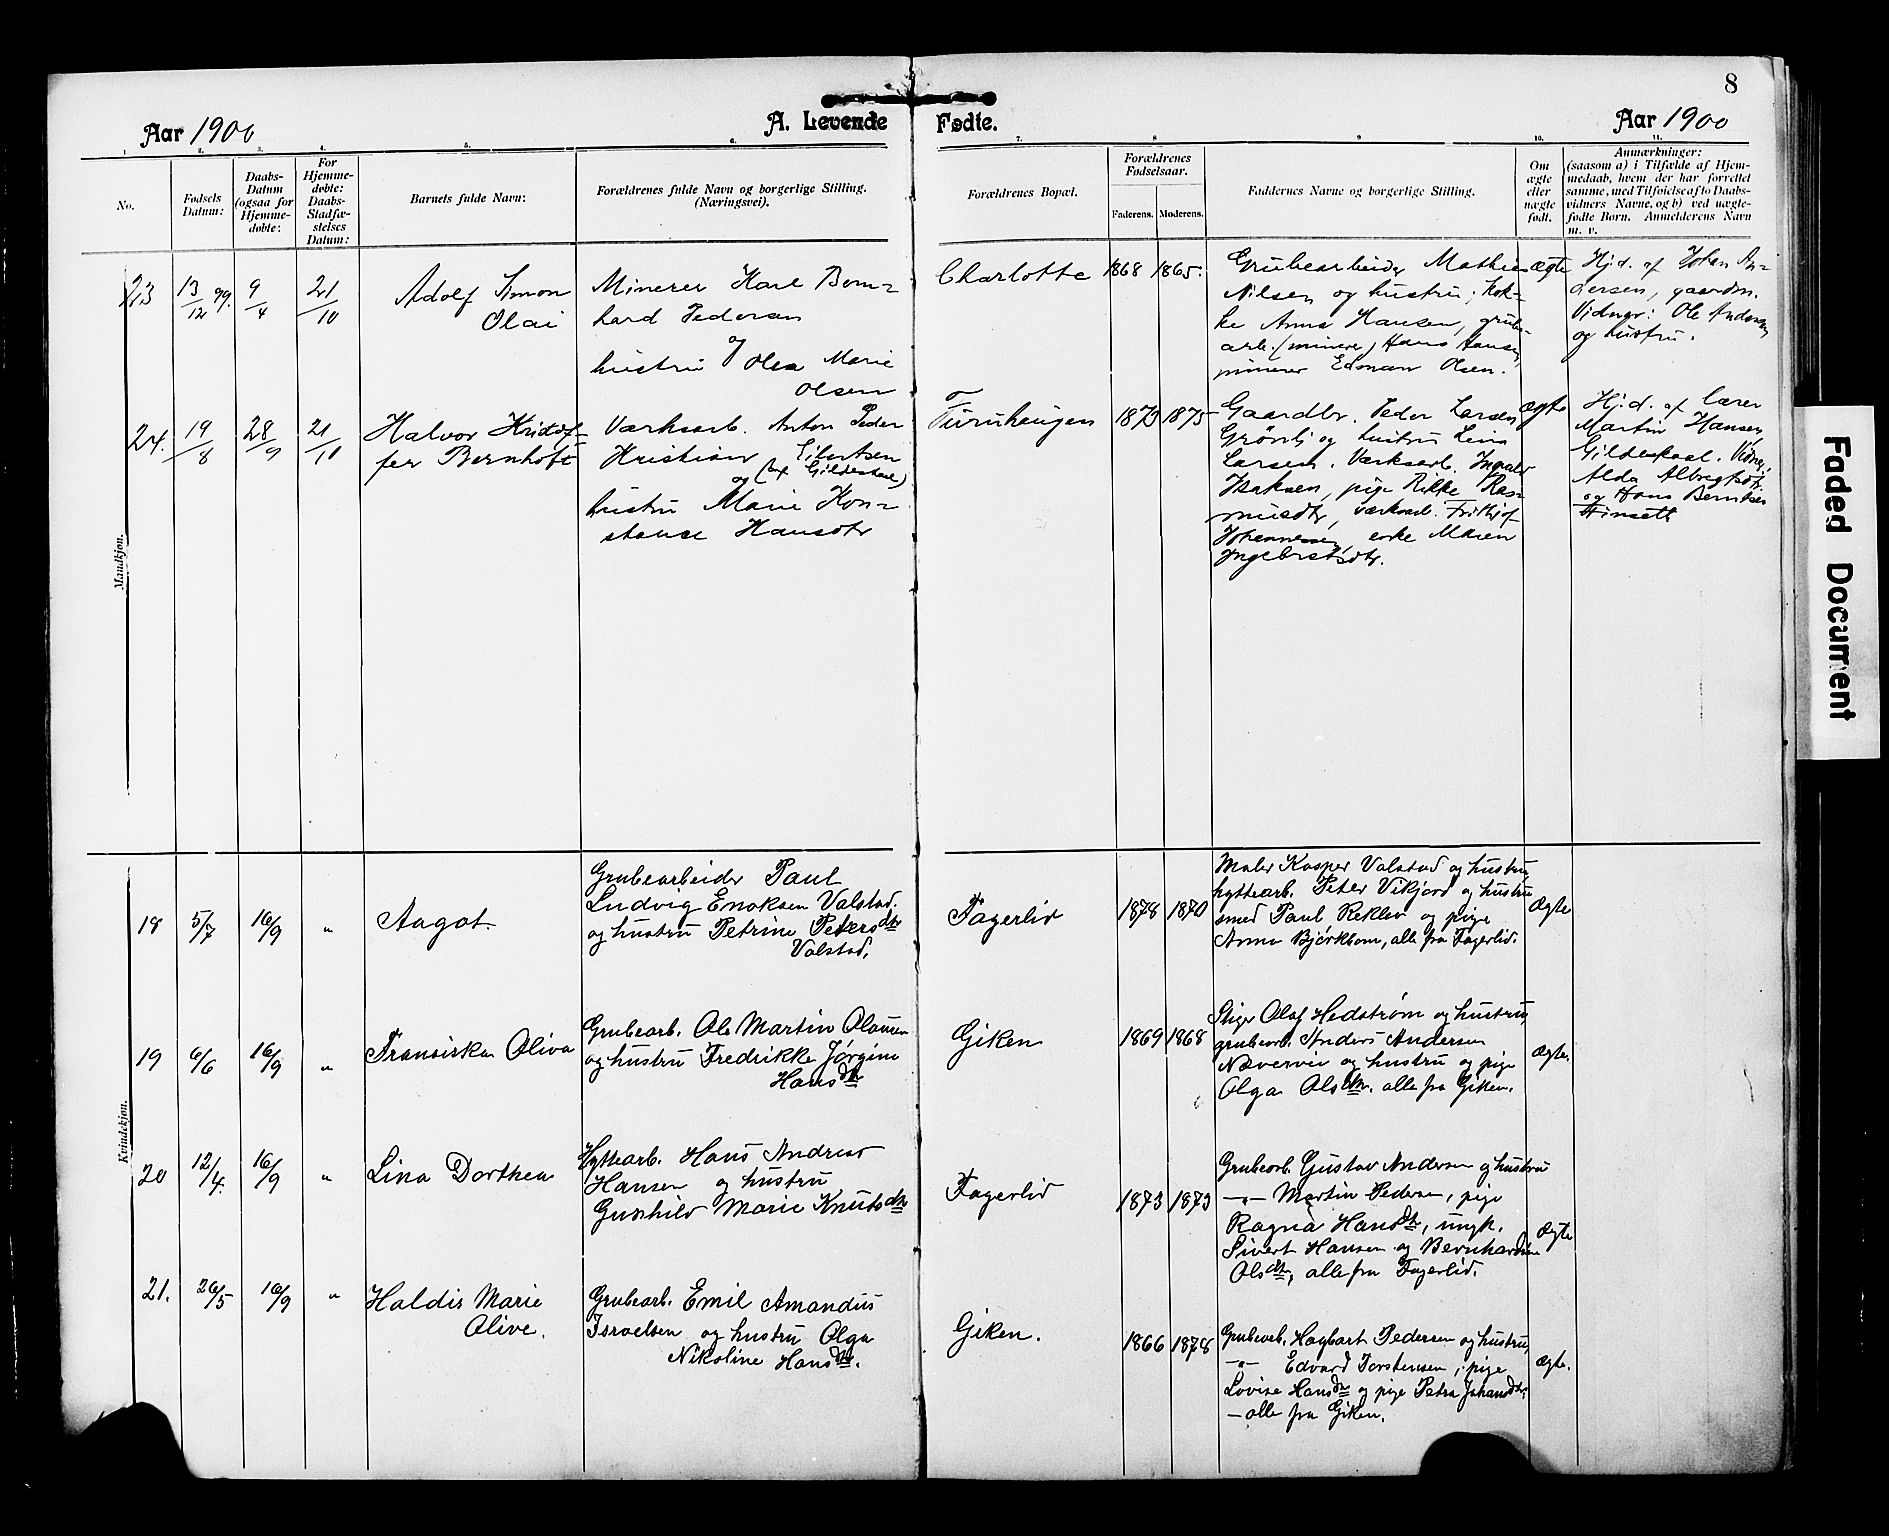 8
Aar 1900
A. Levende
Fødte.
Aar 1900
1.
2.
3.
4.
5.
6.
7.
8
9
10.
11.
No.
Fødsels
Datum:
Daabs-
Datum
(ogsaa for
Hjemme-
døbte:
For
Hjemme-
døbte:
Daabs-
Stadfæ-
stelses
Datum:
Barnets fulde Navn:
Forældrenes fulde Navn og borgerlige Stilling.
(Næringsvei).
Forældrenes Bopæl.
Forældrenes
Fødselsaar.
Faderens.
Moderens.
Faddernes Navne og borgerlige Stilling.
Om
ægte
eller
uægte
født.
Anmærkninger:
(saasom a) i Tilfælde af Hjem-
medaab, hvem der har forrettet
samme, med Tilføielse af to Daabs-
vidners Navne, og b) ved uægte-
fødte Børn. Anmelderens Navn
m. v.
Mandkjøn.
23
13/12 99.
9/4
21/10
Adolf Simon
Olai
Minerer Karl Bern=
hard Pedersen
og
hustru Olea Marie
Olsen
Charlotte
1868
1865.
Grubearbeider Mathias
Nilsen og hustru, Kok-
ke Anna Hansen, grube-
arb. (minerer) Hans Hansen,
minerer Edman Olsen.
ægte
Hj.d. af Johan An-
dersen, gaardm.
Vidner: Ole Andersen
og hustru.
24.
19/8
28/9
21/10
Halvor Kristof-
fer Bernhoft
Værksarb. Anton Peder
Kristian Eilertsen
(af Gildeskaal)
og
hustru Marie Kon=
stanse Hansdtr
Furuhaugen
1873
1875
Gaardbr. Peder Larsen
Grönli og hustru Lina
Larsen. Værksarb. Ingvald
Isaksen, pige Rikke Ras-
musdtr, værksarb. Fridtjof
Johannessen, enke Maren
Ingebrigtsdtr.
ægte
Hj.d. af lærer
Martin Hansen,
Gildeskaal. Vidner:
Alda Albregtsdtr.
og Hans Berntsen
Finsett
Kvindekjøn.
18
5/7
16/9
"
Aagot.
Grubearbeider Paul
Ludvig Enoksen Valstad.
og hustru Petrine Petersdtr
Valstad.
Fagerlid
1878
1870
Maler Kasper Valstad og hustru,
hyttearb. Peter Vikjord og hustru
smed Paul Reklev og pige
Anna Björkbom, alle fra Fagerlid.
Ægte
19
6/6
16/9
"
Fransiska Oliva
Grubearb. Ole Martin Olausen
og hustru Fredrikke Jørgine
Hansdtr
Giken
1869
1868
Stiger Olaf Hedstrøm og hustru,
grubearb. Anders Andersen
Næverviv og hustru og pige
Olga Olsdtr. alle fra Giken.
Ægte.
20
12/4.
16/9
"
Lina Dorthea
Hyttearb. Hans Andreas
Hansen og hustru
Gunhild Marie Knutsdtr
Fagerlid
1873
1873
Grubearb. Gustav Andersen og hustru
—"— Martin Pedersen, pige
Ragna Hansdtr, ungk.
Sivert Hansen og Bernhardine
Olsdtr, alle fra Fagerlid.
Ægte
21.
26/5
16/9
"
Haldis Marie
Olive.
Grubearb. Emil Amandus
Israelsen og hustru Olga
Nikoline Hansdtr.
Giken.
1866
1878
Grubearb. Hagbart Pedersen og hustru,
—"— Edvard Torstensen, pige
Lovise Hansdtr og pige Petra Johansdtr.
—alle fra Giken.
Ægte.
Faded Document